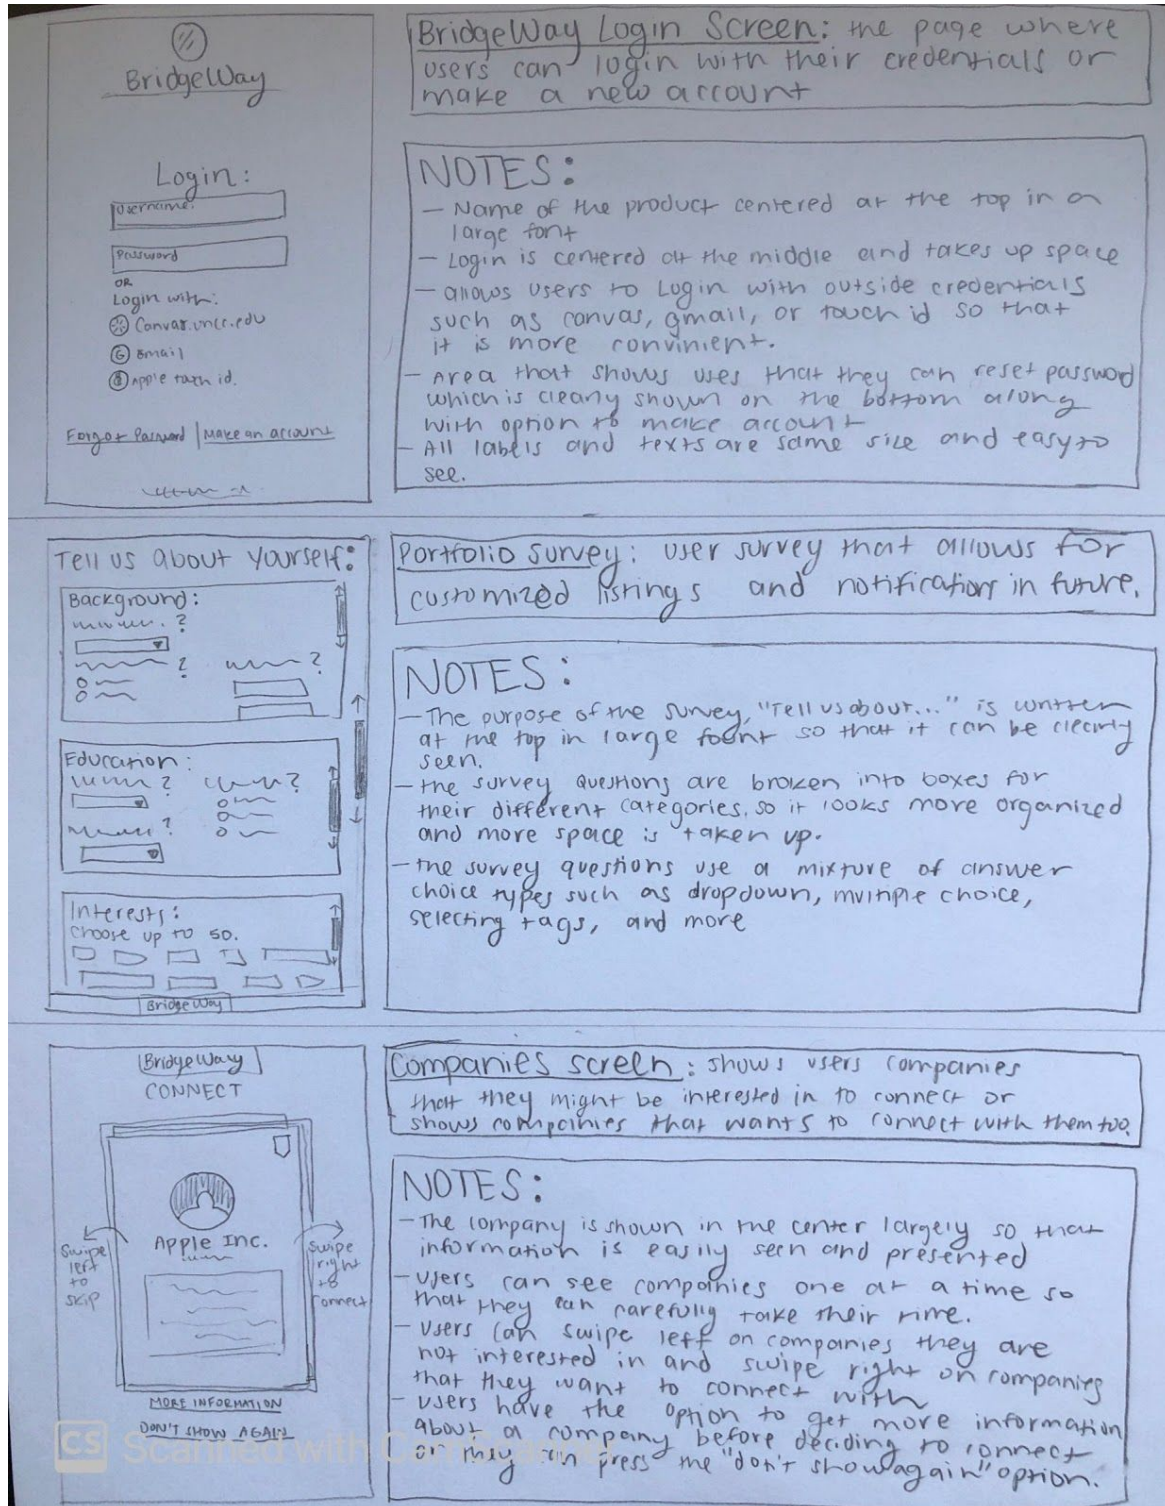 BridgeWay
Login:
Username:
Password
OR
Login with:
Canvas.uncc.edu
Gmail
Apple
id.
Forgot Password | Make an account
BridgeWay Login Screen: the page where
users can login with their credentials or
make a new account
NOTES:
- Name of the product centered at the top in a
large font
- Login is centered at the middle and takes up space
- allows users to Login with outside credentials
such as canvas, gmail, or touch id so that
it is more convinient.
- Area that shows uses that they can reset password
which is clearly shown on the bottom along
with option to make account
- All labels and texts are same size and easy to
see.
Tell us about yourself:
Background:
?
? ?
Education:
? ?
?
Interests:
Choose up to 50.
BridgeWay
Portfolio survey: user survey that allows for
customized listings and notifications in future.
NOTES:
- The purpose of the survey, "Tell us about..." is written
at the top in large font so that it can be clearly
seen.
- the survey questions are broken into boxes for
their different categories, so it looks more organized
and more space is taken up.
- the survey questions use a mixture of answer
choice types such as dropdown, multiple choice,
selecting tags, and more
BridgeWay
CONNECT
Apple Inc.
Swipe
left
to
skip
Swipe
right
to
connect
MORE INFORMATION
DON'T SHOW AGAIN
Companies screen: shows users companies
that they might be interested in to connect or
shows companies that wants to connect with them too.
NOTES:
- The company is shown in the center largely so that
information is easily seen and presented
- Users can see companies one at a time so
that they can carefully take their time.
- Users can swipe left on companies they are
not interested in and swipe right on companies
that they want to connect with
- Users have the option to get more information
about a company before deciding to connect
or they can press the "don't show again" option.
CS Scanned with CamScanner